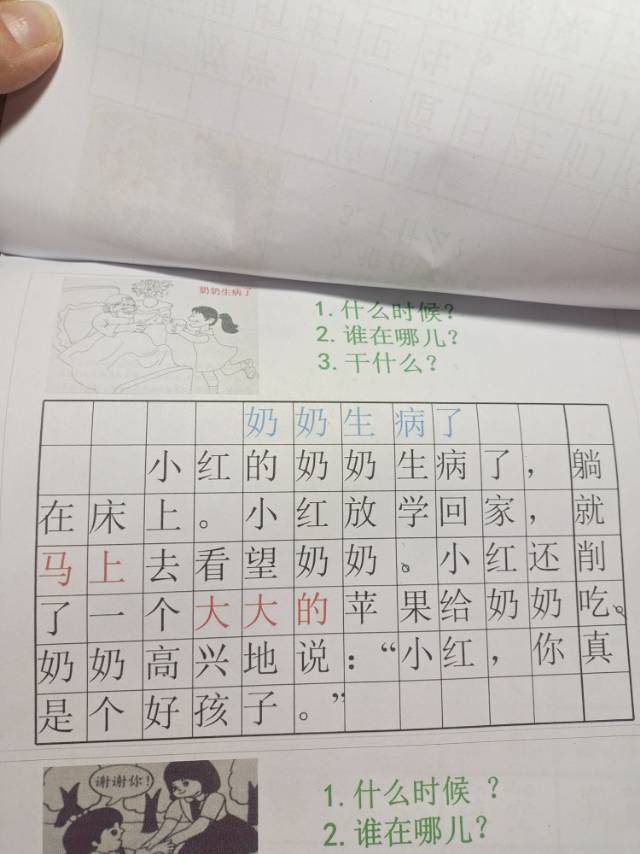 奶奶生病了
1. 什么时候？
2. 谁在哪儿？
3. 干什么？
奶奶生病了
小红的奶奶生病了，躺
在床上。小红放学回家，就
马上去看望奶奶。小红还削
了一个大大的苹果给奶奶吃。
奶奶高兴地说：“小红，你真
是个好孩子。”
谢谢你！
1. 什么时候？
2. 谁在哪儿？